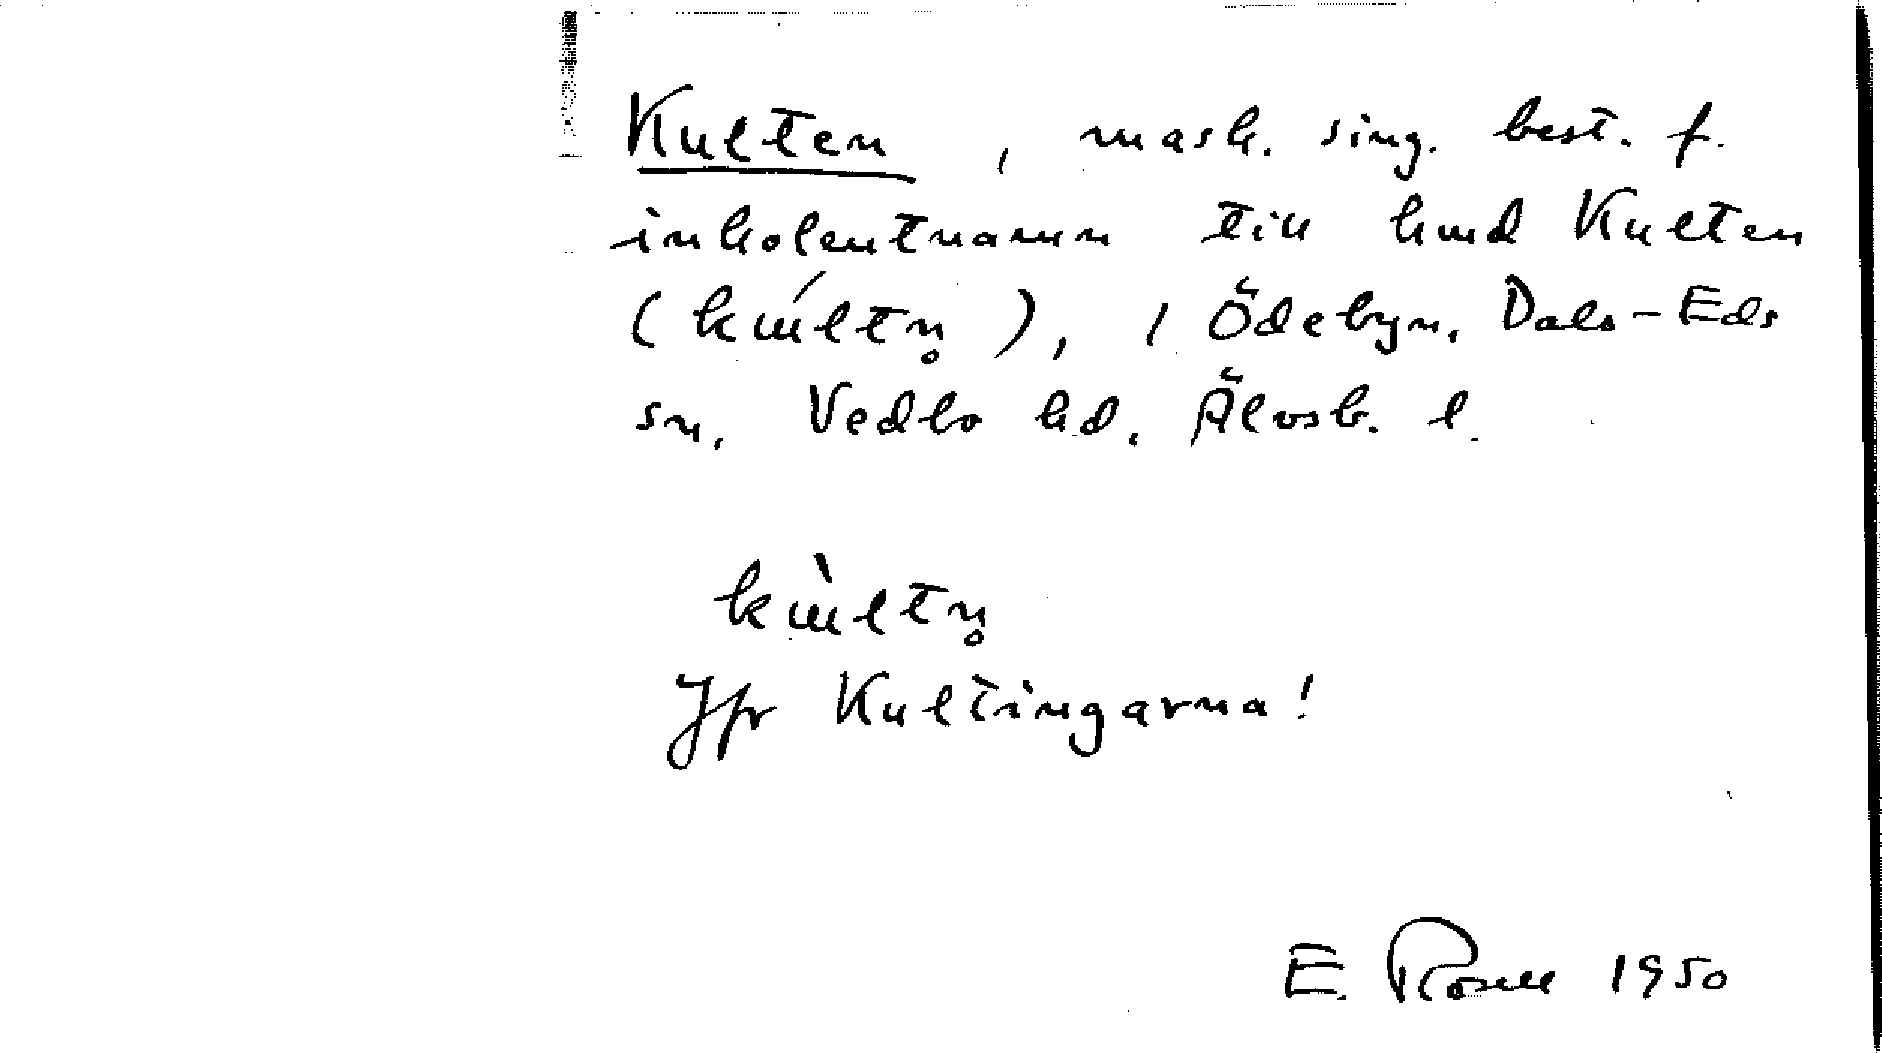 Kulten, mask. sing. best. f.
inkolentnamn till hmd Kulten
(kɯ́ltn̥), i Ödebyn, Dals-Eds
sn, Vedbo hd. Älvsb. l.
kɯ̀ltn̥
Jfr Kultingarna!
E. Rosell 1950